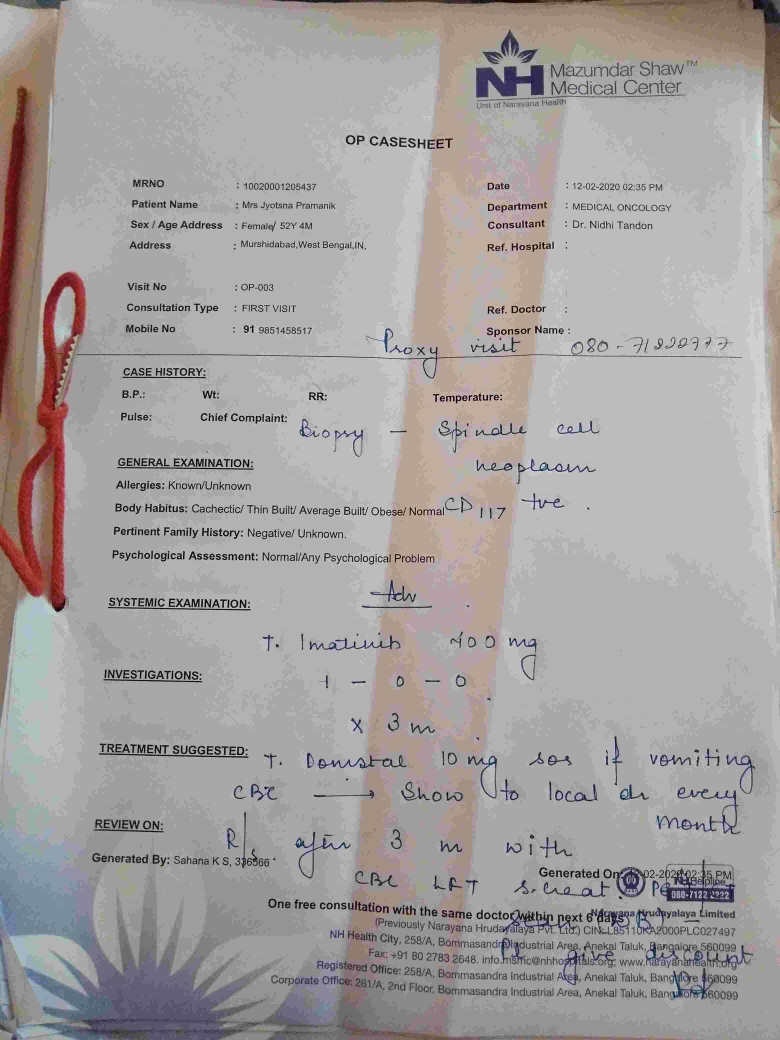 NH Mazumdar Shaw™
Medical Center
Unit of Narayana Health
OP CASESHEET
MRNO : 10020001205437 Date : 12-02-2020 02:35 PM
Patient Name : Mrs Jyotsna Pramanik Department : MEDICAL ONCOLOGY
Sex / Age Address : Female/ 52Y 4M Consultant : Dr. Nidhi Tandon
Address : Murshidabad,West Bengal,IN, Ref. Hospital :
Visit No : OP-003
Consultation Type : FIRST VISIT Ref. Doctor :
Mobile No : 91 9851458517 Sponsor Name :
Proxy visit
CASE HISTORY:
B.P.: Wt: RR: Temperature:
Pulse: Chief Complaint: Biopsy – Spindle cell
neoplasm
GENERAL EXAMINATION:
Allergies: Known/Unknown
Body Habitus: Cachectic/ Thin Built/ Average Built/ Obese/ Normal CD 117 +ve .
Pertinent Family History: Negative/ Unknown.
Psychological Assessment: Normal/Any Psychological Problem
Adv
SYSTEMIC EXAMINATION:
T. Imatinib 400 mg
INVESTIGATIONS: 1 – 0 – 0
x 3 m
TREATMENT SUGGESTED: T. Domstal 10 mg sos if vomiting
CBC → Show to local dr every
month
REVIEW ON: R/ after 3 m with
Generated By: Sahana K S,
Generated On: 02:35 PM
CBC LFT s.creat.
080-7122 2222
One free consultation with the same doctor within next 6 days
Narayana Hrudayalaya Limited
(Previously Narayana Hrudayalaya Pvt. Ltd.) CIN:L85110KA2000PLC027497
NH Health City, 258/A, Bommasandra Industrial Area, Anekal Taluk, Bangalore 560099
Fax: +91 80 2783 2648. www.narayanahealth.org
give discount
Registered Office: 258/A, Bommasandra Industrial Area, Anekal Taluk, Bangalore 560099
Corporate Office: 261/A, 2nd Floor, Bommasandra Industrial Area, Anekal Taluk, Bangalore 560099